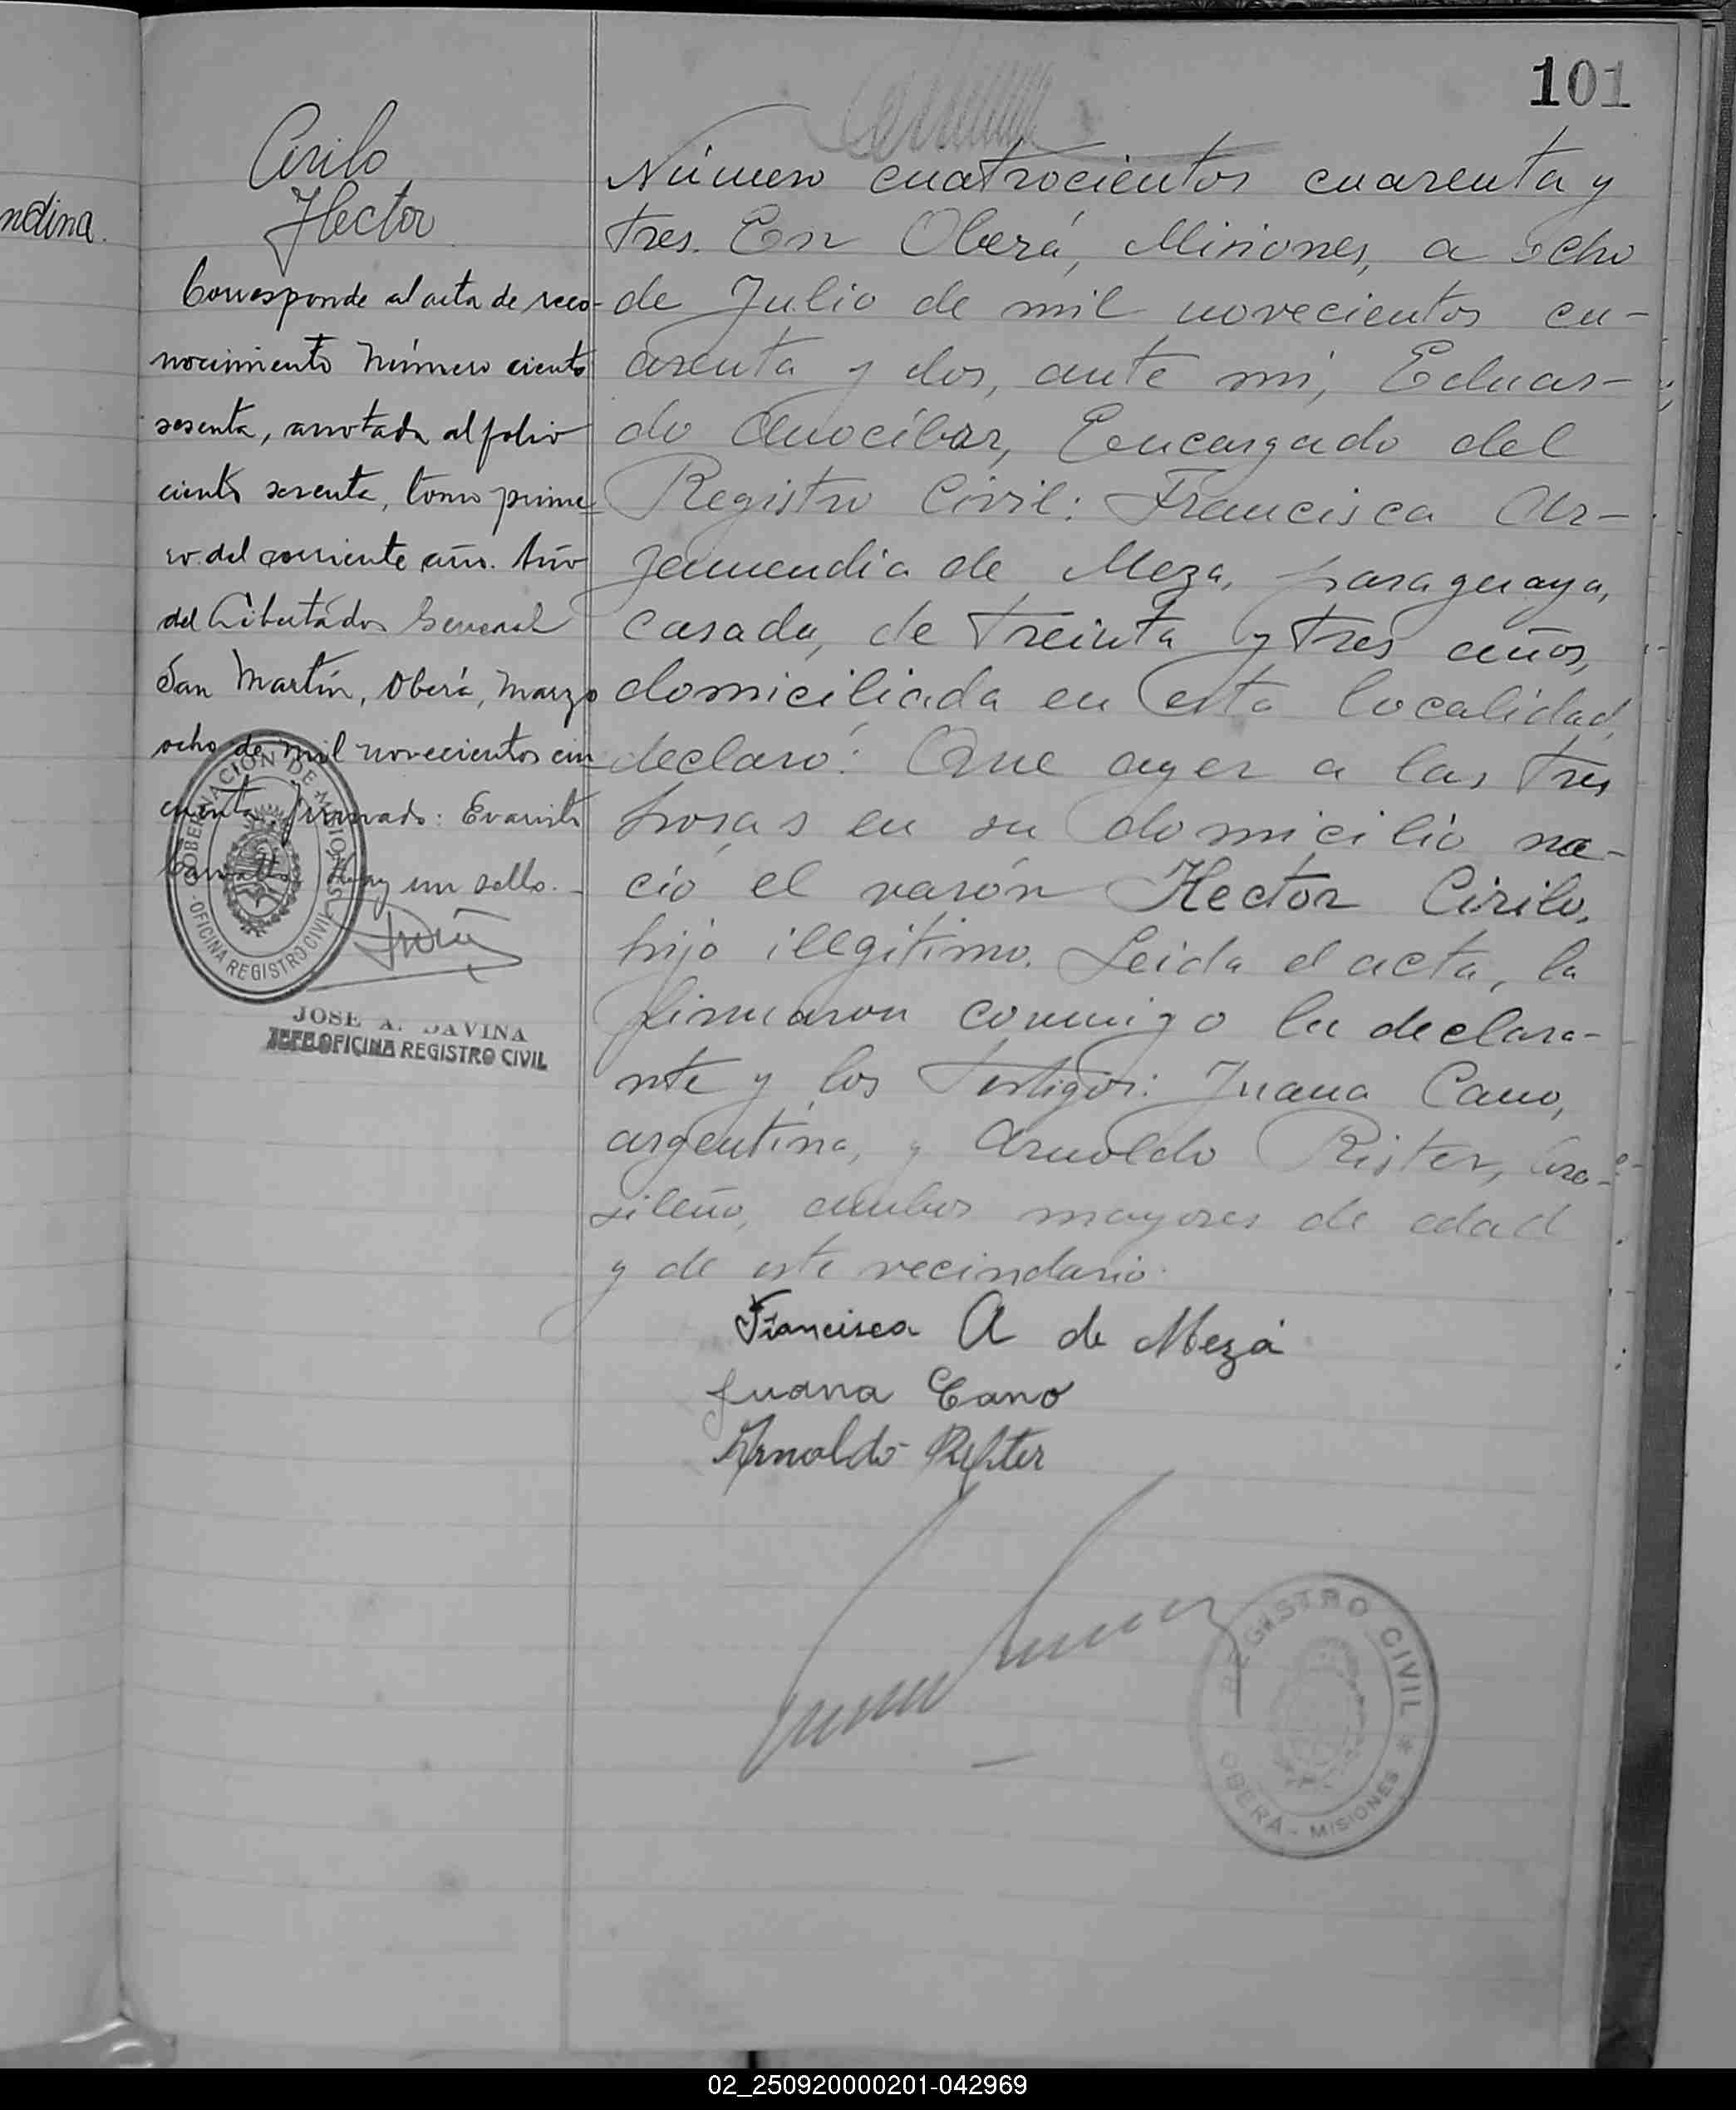 101
ndina.
Cirilo
Hector
Corresponde al acta de reco-
nocimiento Número ciento
sesenta, anotada al folio
ciento sesenta, tomo prime-
ro del corriente año. Año
del Libertador General
San Martín, Oberá, Marzo
ocho de mil novecientos cin-
cuenta. firmado: Evaristo
Hay un sello.-
GOBERNACION DE MISIONES
-OFICINA REGISTRO CIVIL-
JOSE A. DAVINA
JEFE OFICINA REGISTRO CIVIL
Número cuatrocientos cuarenta y
tres. En Oberá, Misiones, a ocho
de Julio de mil novecientos cu-
arenta y dos, ante mi, Eduar-
do Anocíbar, Encargado del
Registro Civil: Francisca Ar-
zamendia de Meza, paraguaya,
casada, de treinta y tres años,
domiciliada en esta localidad,
declaró: Que ayer a las tres
horas en su domicilio na-
ció el varón Hector Cirilo,
hijo ilegitimo. Leida el acta, la
firmaron conmigo la declara-
nte y los testigos: Juana Cano,
argentina, y Arnoldo Rister, bra-
sileño, ambos mayores de edad
y de este vecindario.
Francisca A de Meza
Juana Cano
Arnoldo Rister
REGISTRO CIVIL *
OBERA - MISIONES
02_250920000201-042969